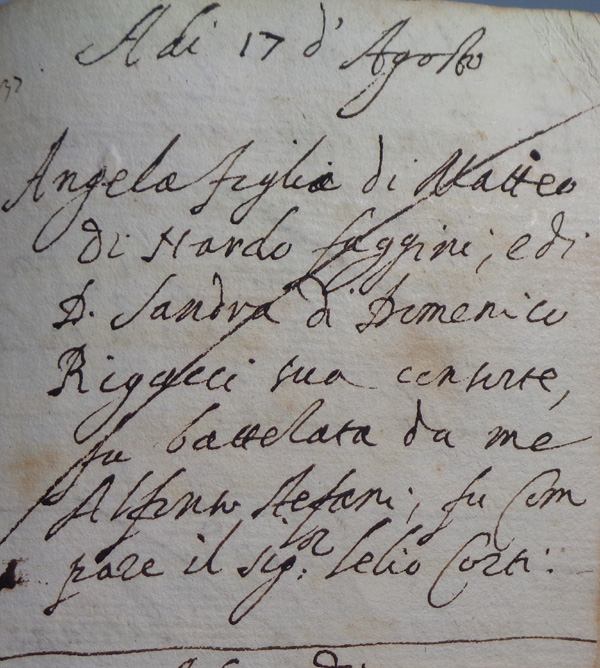 Adi 17 d' Agosto
Angela figlia di Matteo
di Nardo faggini; e di
D. Sandra di Domenico
Rigacci sua consorte,
fu battezata da me
Alfonso Stefani; fu Com
pare il sig:or Lelio Corti: